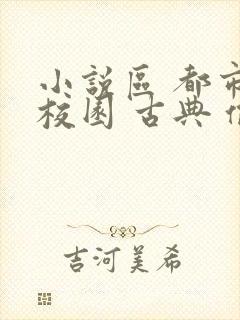 小說區 都市
校園 古典
吉河美希